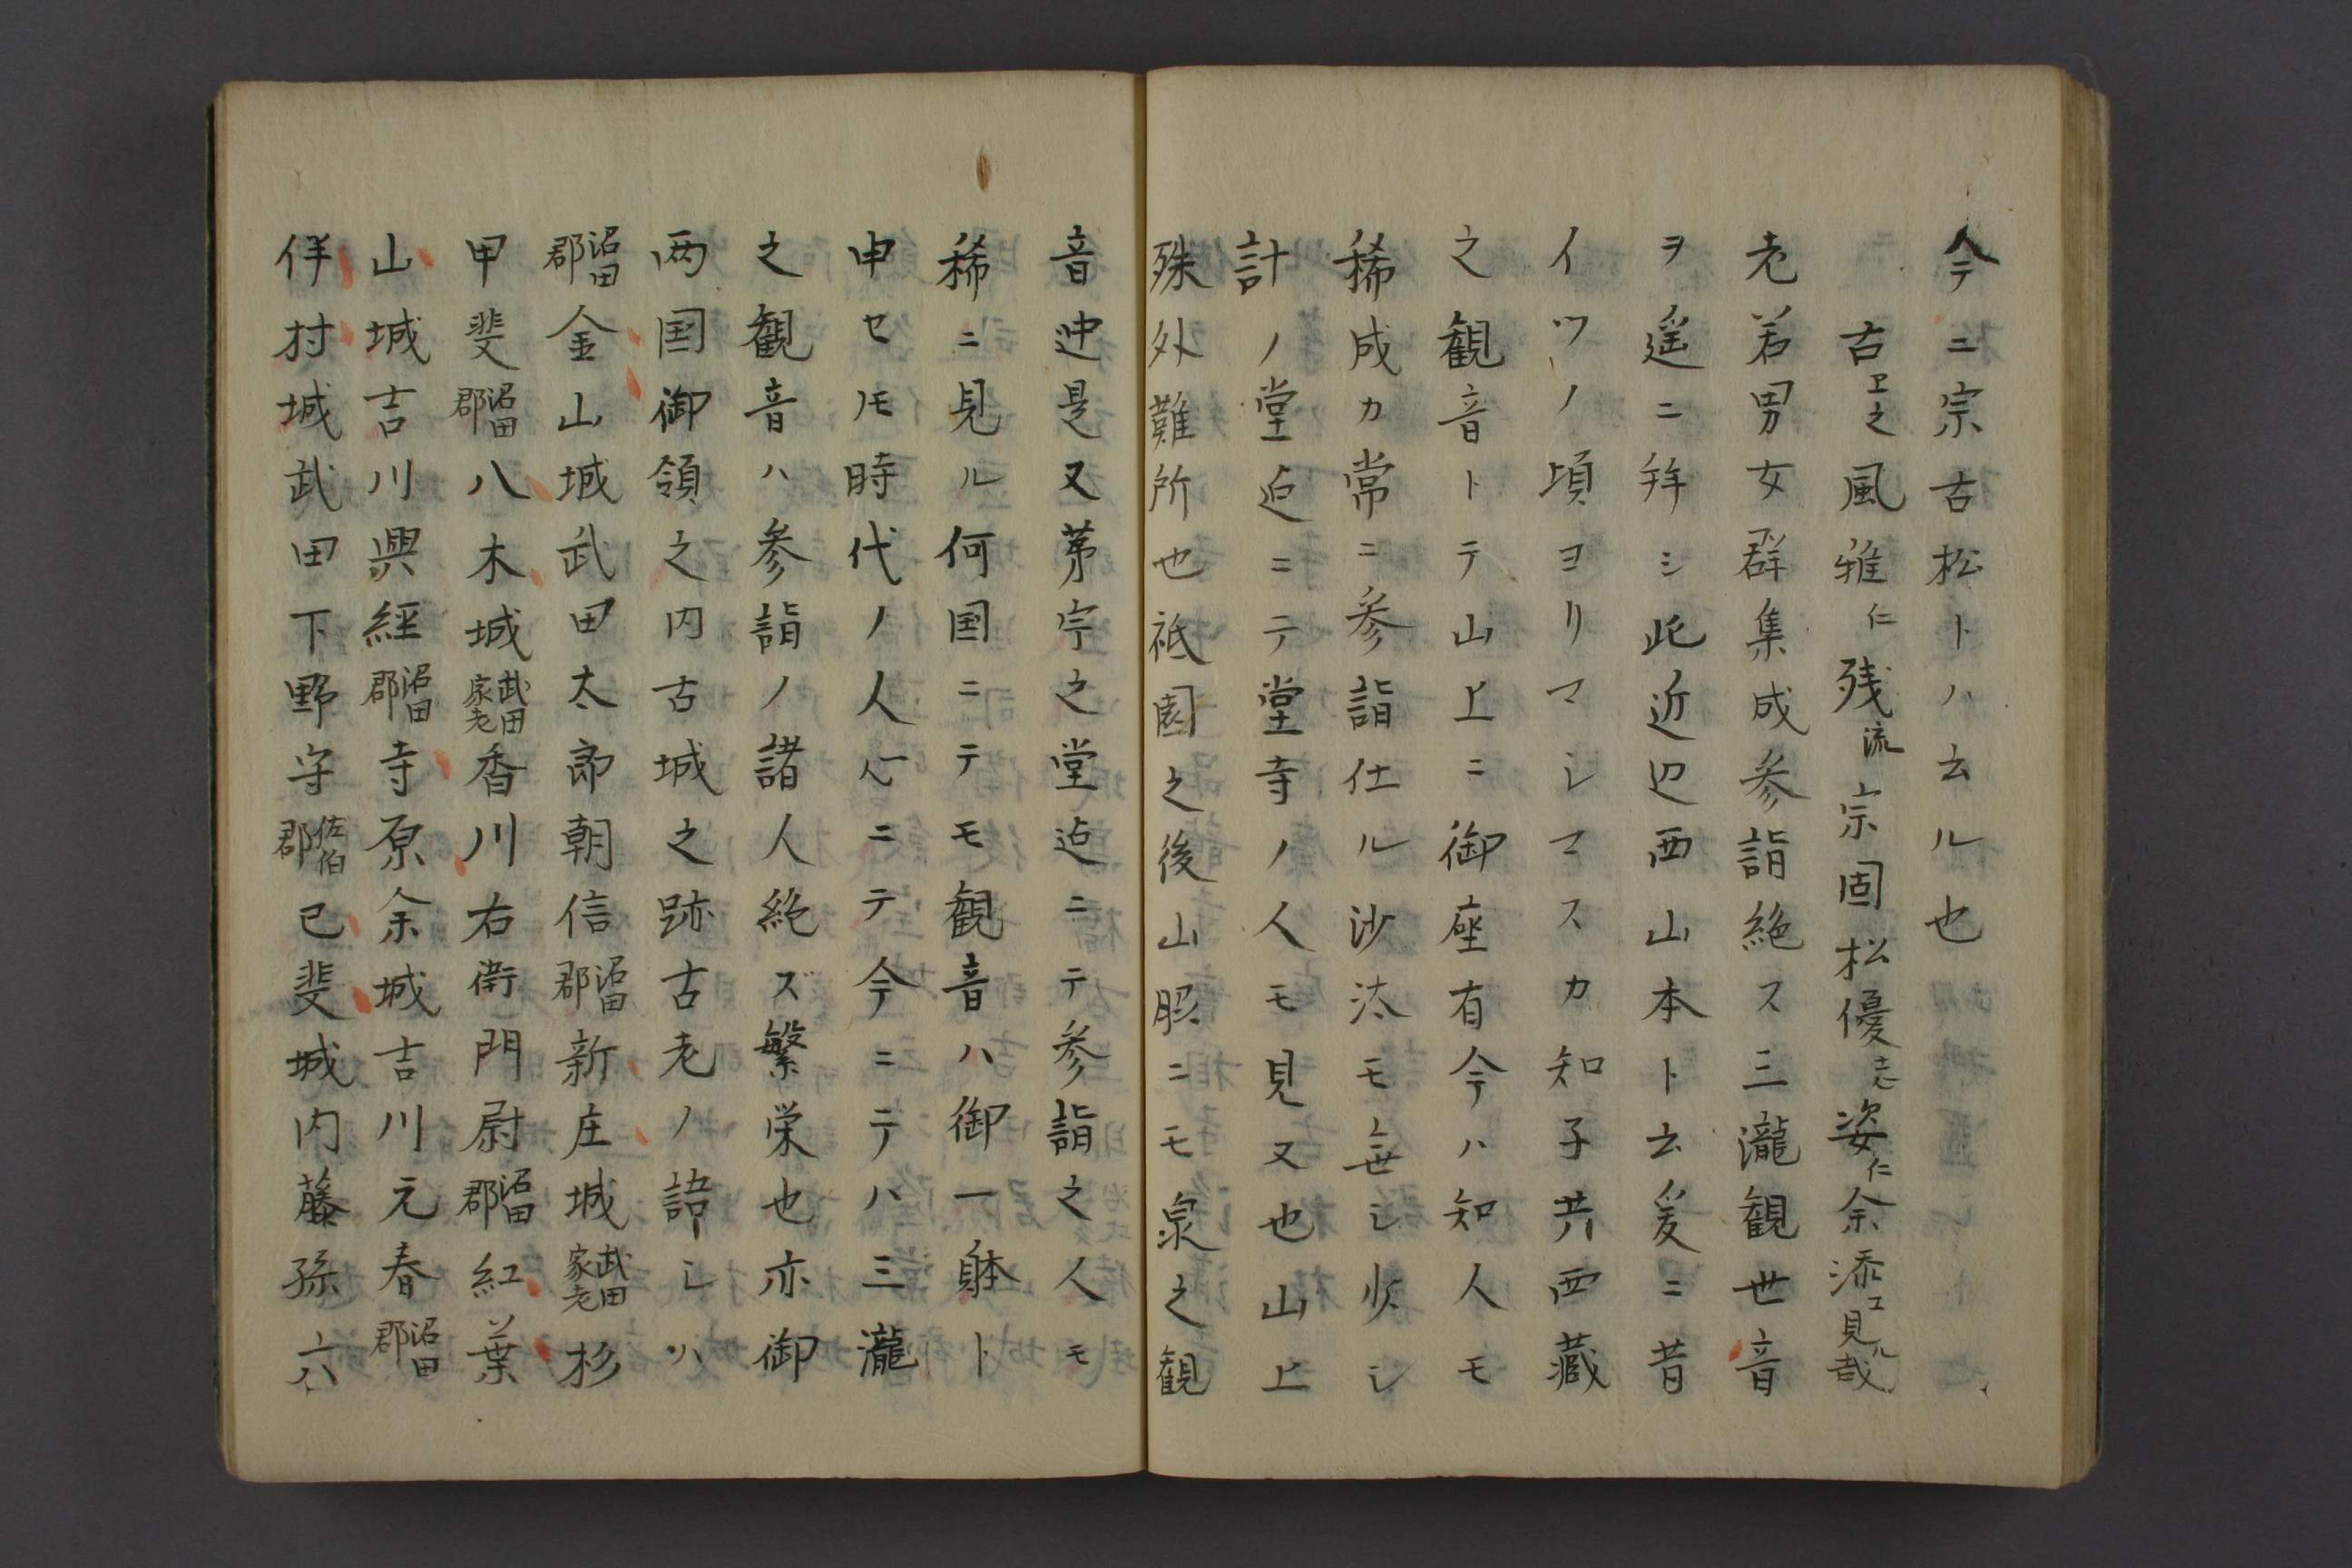 今テニ宗古松トハ云ル也
古ヱ之風雅仁残流宗固松優志姿仁余添エ見ル哉
老若男女群集成参詣絶ス三瀧観世音
ヲ遥ニ拜シ此近辺西山本ト云爰ニ昔
イツノ頃ヨリマシマスカ知子共西蔵
之観音トテ山上ニ御座有今ハ知人モ
稀成カ常ニ参詣仕ル沙汰モ無シ火シ
計ノ堂迠ニテ堂寺ノ人モ見又也山上
殊外難所也祗園之後山脇ニモ泉之観
音迚是又茅宇之堂迠ニテ参詣之人モ
稀ニ見ル何国ニテモ観音ハ御一躰ト
申セノモ時代ノ人心ニテ今ニテハ三瀧
之観音ハ参詣ノ諸人絶ズ繁栄也亦御
两国御領之内古城之跡古老ノ諱シハ
沼田郡金山城武田太郎朝信沼田郡新庄城武田家老杉
甲斐沼田郡八木城武田家老香川右衛門尉沼田郡紅葉
山城吉川興經沼田郡寺原余城吉川元春沼田郡
伴村城武田下野守佐伯郡己斐城内藤孫六